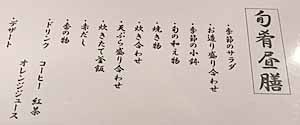 旬肴昼膳
・季節のサラダ
・お造り盛り合わせ
・季節の小鉢
・旬の和え物
・焼き物
・炊き合わせ
・天ぷら盛り合わせ
・炊きたて釜飯
・赤だし
・香の物
・ドリンク
コーヒー 紅茶
オレンジジュース
・デザート